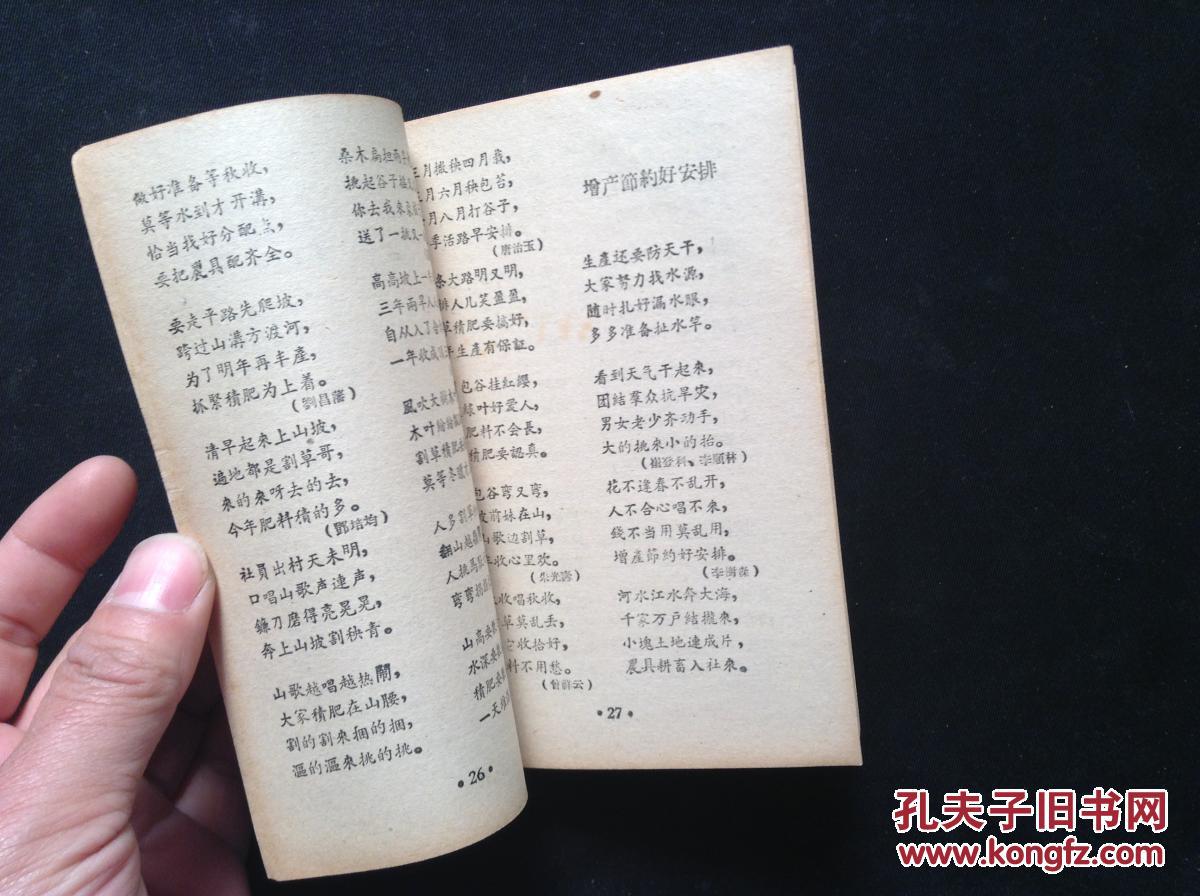 做好准备等秋收，
莫等水到才开溝，
恰当找好分配点，
要把農具配齐全。
要走平路先爬坡，
跨过山溝方渡河，
为了明年再丰產，
抓緊積肥为上着。
(劉昌藩)
清早起來上山坡，
遍地都是割草哥，
來的來呀去的去，
今年肥料積的多。
(鄧培均)
社員出村天未明，
口唱山歌声連声，
鐮刀磨得亮晃晃，
奔上山坡割秧青。
山歌越唱越热鬧，
大家積肥在山腰，
割的割來捆的捆，
漚的漚來挑的挑。
桑木扁担兩
挑起谷子
你去我來
送了一挑又一
高高坡上一
三年兩旱
自从入了
一年收成
風吹大
木叶紛紛
割草積肥
莫等冬
人多割
翻山越
人挑馬
彎彎
山高
水深
積肥
一天
·26·
三月撒秧四月栽，
月六月秧包苔，
月八月打谷子，
季活路早安排。
(唐治玉)
条大路明又明，
人儿笑盈盈，
草積肥要搞好，
年生產有保証。
包谷挂紅纓，
叶好爱人，
肥料不会長，
積肥要認真。
包谷彎又彎，
前妹在山，
歌边割草，
收心里欢。
(朱光壽)
收唱秋收，
草莫乱丢，
收拾好，
料不用愁。
增产節約好安排
生產还要防天干，
大家努力找水源，
随时扎好漏水眼，
多多准备扯水竿。
看到天气干起來，
团結羣众抗旱灾，
男女老少齐动手，
大的挑來小的抬。
(崔登科、李順林)
花不逢春不乱开，
人不合心唱不來，
錢不当用莫乱用，
增產節約好安排。
河水江水奔大海，
千家万戶結攏來，
小塊土地連成片，
農具耕畜入社來。
·27·
孔夫子旧书网
www.kongfz.com